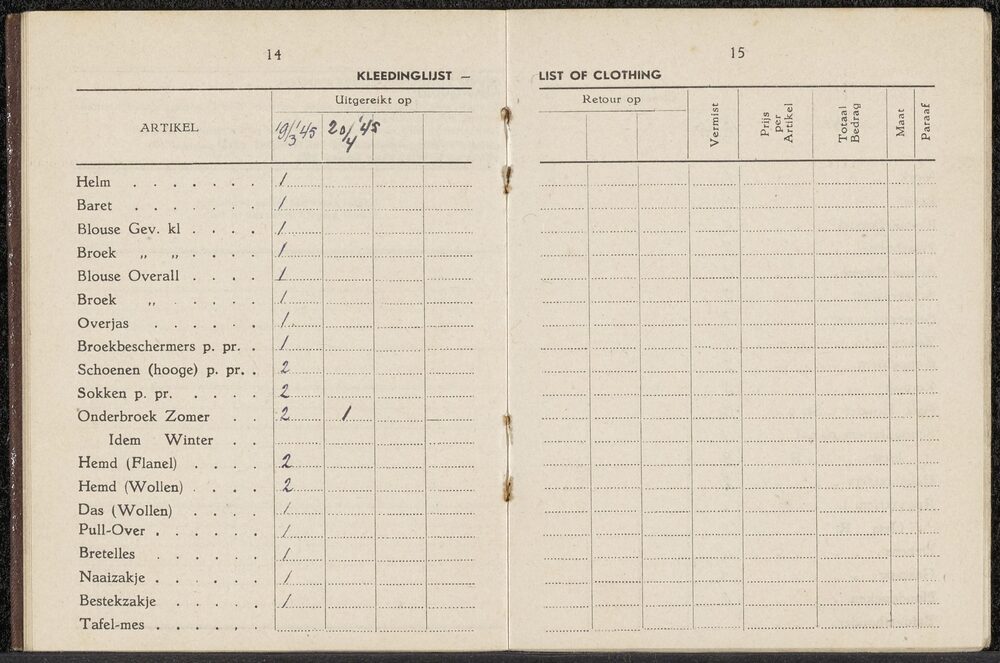 14
KLEEDINGLIJST –
ARTIKEL
Uitgereikt op
19/3 '45 20/4 '45
Helm . . . . . . . 1
Baret . . . . . . . 1
Blouse Gev. kl . . . . 1
Broek „ „ . . . . 1
Blouse Overall . . . . 1
Broek „ . . . . . 1
Overjas . . . . . . 1
Broekbeschermers p. pr. . 1
Schoenen (hooge) p. pr. . 2
Sokken p. pr. . . . . 2
Onderbroek Zomer . . 2 1
Idem Winter . .
Hemd (Flanel) . . . . 2
Hemd (Wollen) . . . . 2
Das (Wollen) . . . . 1
Pull-Over . . . . . . 1
Bretelles . . . . . . 1
Naaizakje . . . . . . 1
Bestekzakje . . . . . 1
Tafel-mes . . . . . .
15
LIST OF CLOTHING
Retour op
Vermist
Prijs
per
Artikel
Totaal
Bedrag
Maat
Paraaf